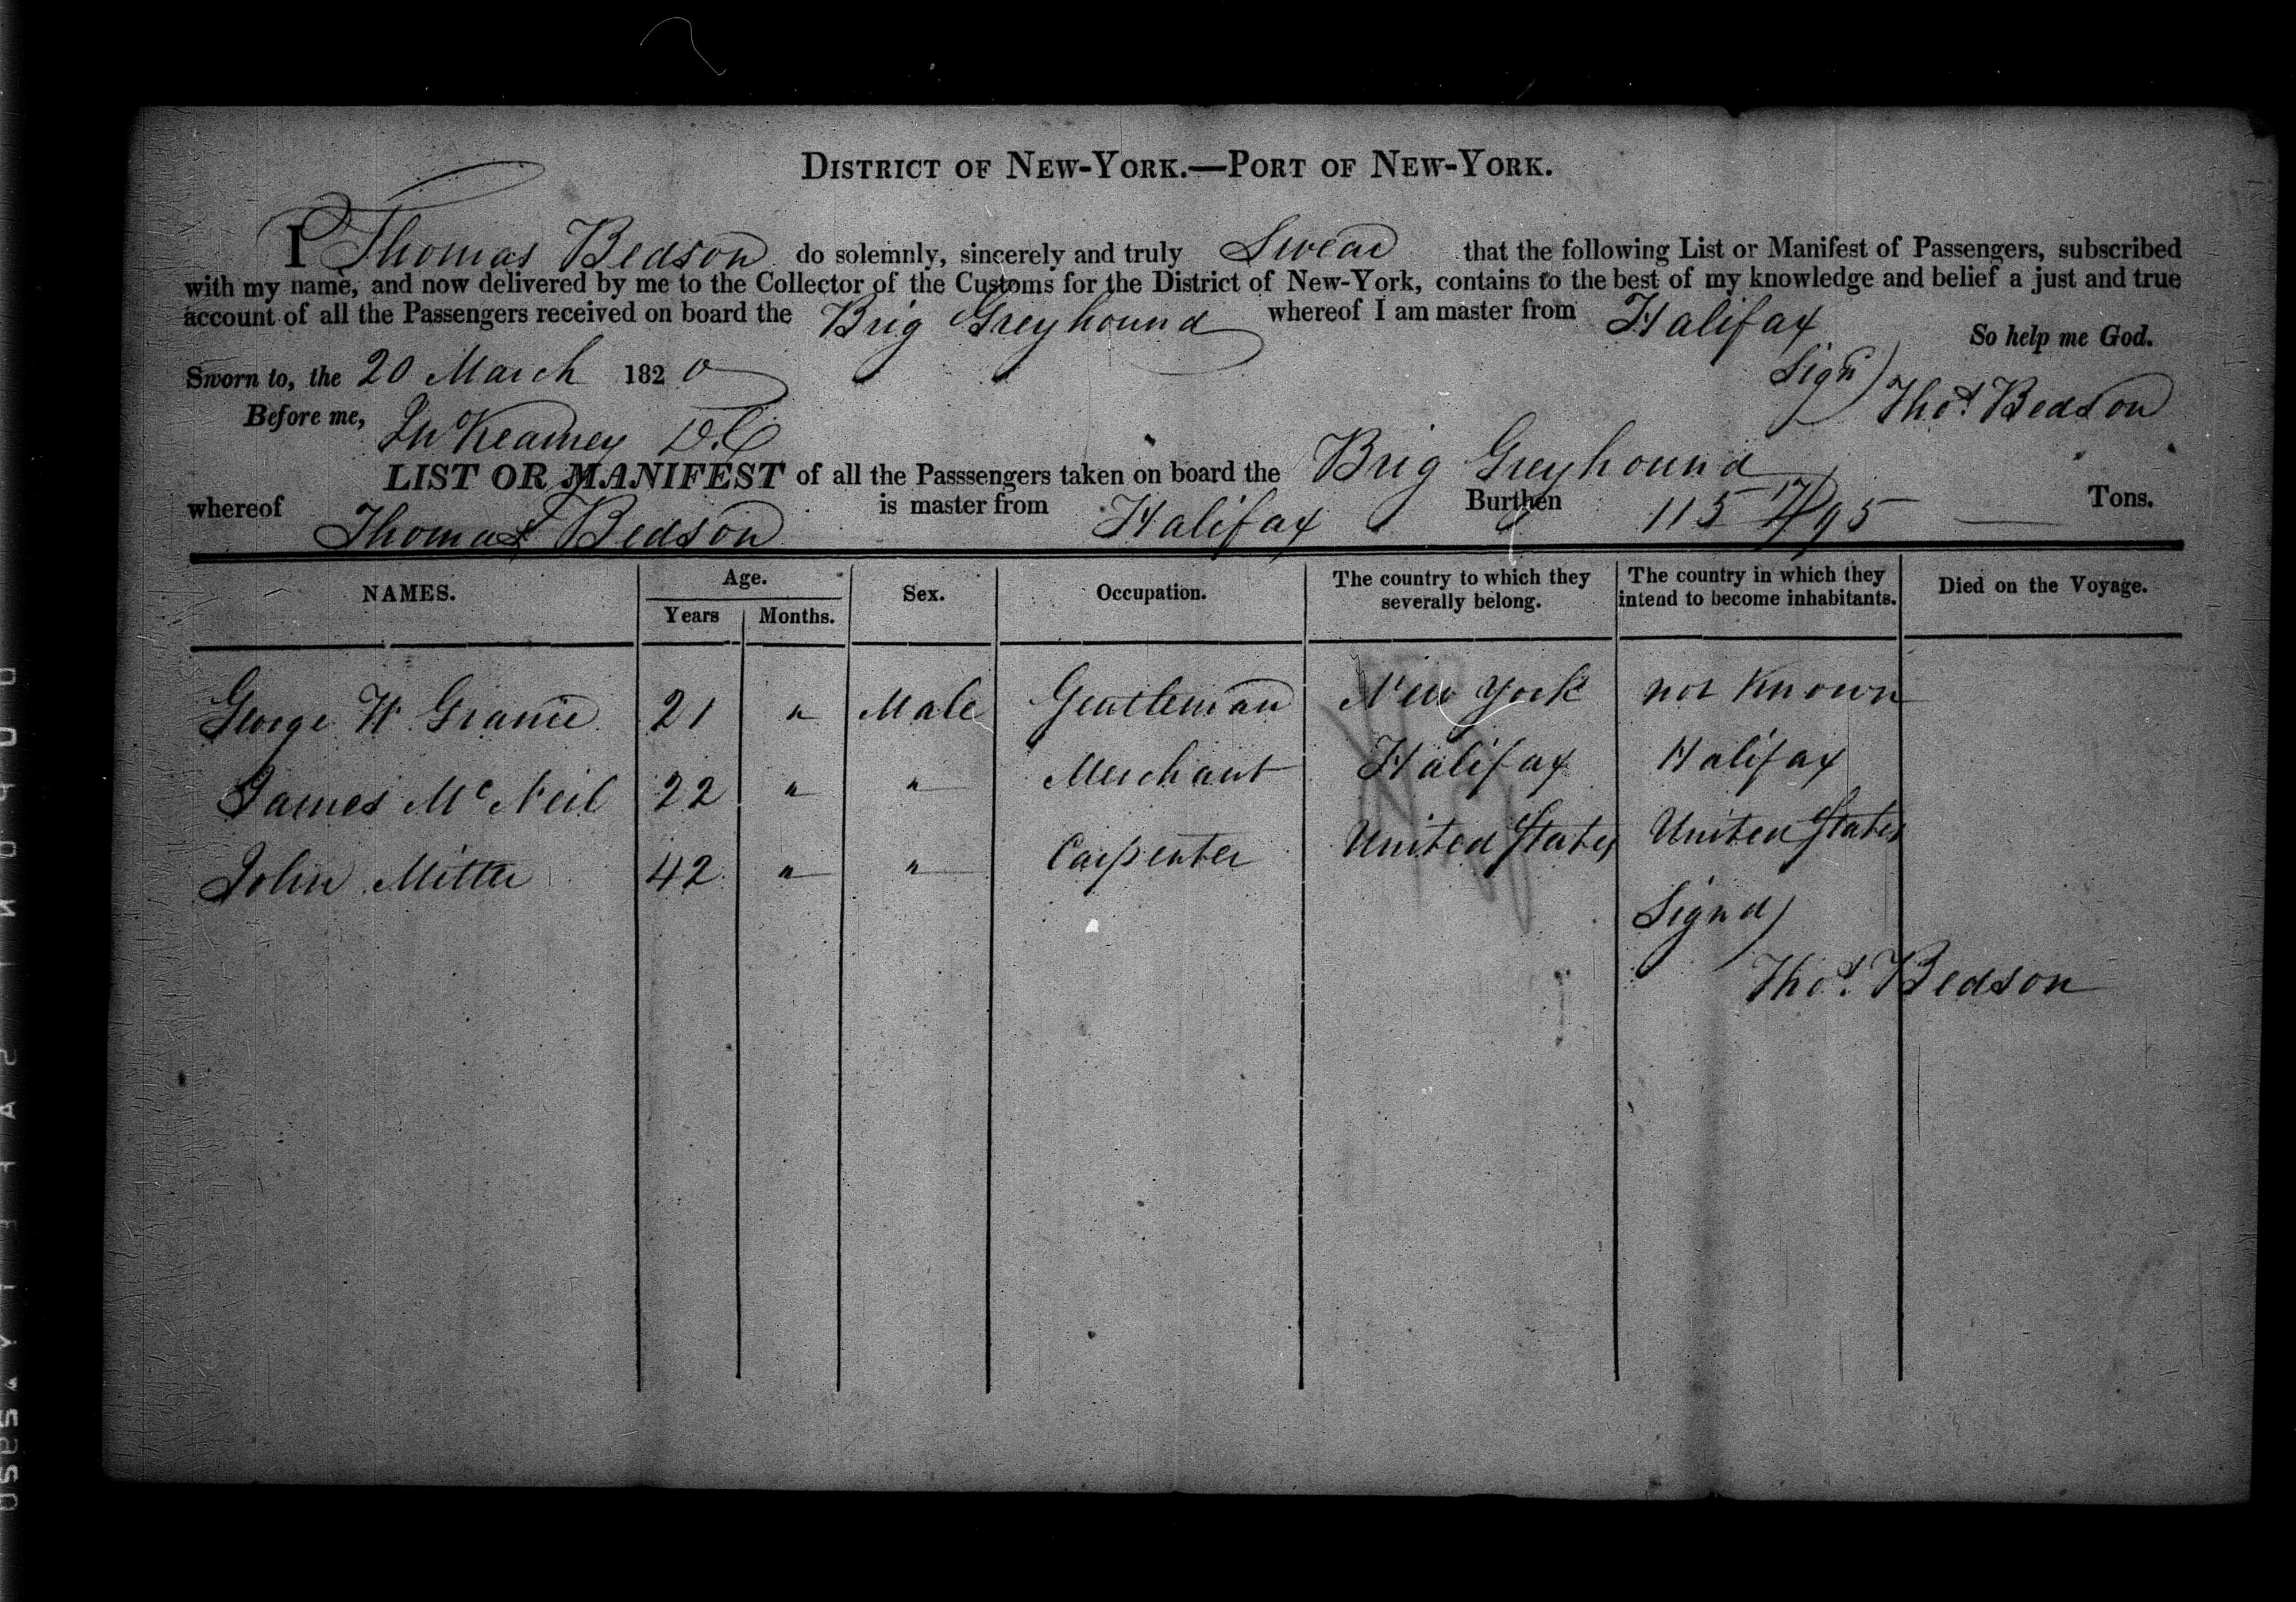 DISTRICT OF NEW-YORK.—PORT OF NEW-YORK.
I Thomas Bedson do solemnly, sincerely and truly Swear that the following List or Manifest of Passengers, subscribed
with my name, and now delivered by me to the Collector of the Customs for the District of New-York, contains to the best of my knowledge and belief a just and true
account of all the Passengers received on board the Brig Greyhound whereof I am master from Halifax
So help me God.
Sworn to, the 20 March 1820
Signd) Thos. Bedson
Before me, Kearney D.C
LIST OR MANIFEST of all the Passsengers taken on board the Brig Greyhound
whereof Thomas Bedson is master from Halifax Burthen 115 17/95 Tons.
NAMES. Age. Years Months. Sex. Occupation. The country to which they severally belong. The country in which they intend to become inhabitants. Died on the Voyage.
George W 21 " Male Gentleman New York not Known
James McNeil 22 " " Merchant Halifax Halifax
John 42 " " Carpenter United States United States
Signd)
Thos. Bedson